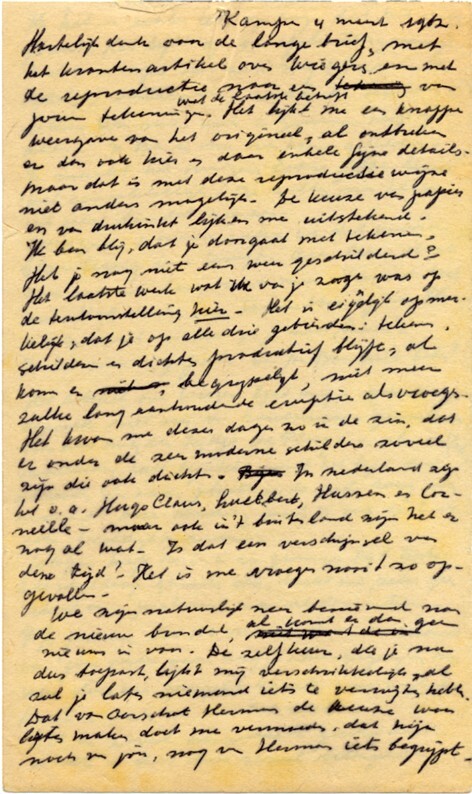 Kampen 4 maart 1962.
Hartelijk dank voor de lange brief, met
het krantenartikel over Wiegers, en met
de reproductie naar een van
jouw tekeningen. Het lijkt me een knappe
weergave van het origineel, al ontbreken
er dan ook hier en daar enkele fijne details.
Maar dat is met deze reproductiewijze
niet anders mogelijk. De keuze van papier
en van drukinkt lijken me uitstekend.
Ik ben blij, dat je doorgaat met tekenen.
Heb je nog niet eens weer geschilderd?
Het laatste werk wat ik van je zag was op
de tentoonstelling hier. Het is eigelijk opmer-
kelijk, dat je op alle drie gebieden: teken,
schilder en dichter productief blijft, al
kom er , begrijpelijk, niet meer
zulke lang aanhoudende eruptie als vroeger.
Het kwam me dezer dagen zo in de zin, dat
er onder de zeer moderne schilders zoveel
zijn die ook dichten. In Nederland zijn
het o.a. Hugo Claus, Lucebert, Hussem en Cor-
neille - maar ook in 't buitenland zijn het er
nog al wat. Is dat een verschijnsel van
deze tijd? Het is me vroeger nooit zo op-
gevallen.
We zijn natuurlijk zeer benieuwd naar
de nieuwe bundel, al komt er dan geen
nieuws in voor. De zelfkeur, die je nu
dus toepast, lijkt mij verschrikkelijk, al
zal je later niemand iets te verwijten hebben.
Dat van Oorschot Hermans de keuze wou
laten maken doet me vermoeden, dat hij
noch van jou, nog van Hermans iets begrijpt.